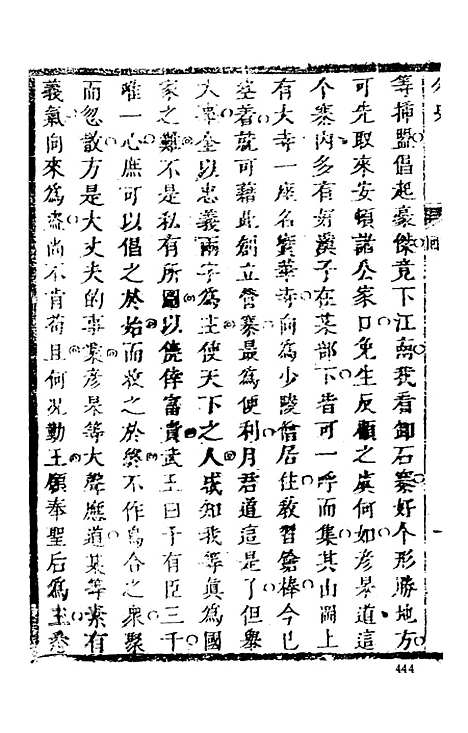 等揷盟倡起豪傑竟下江南我看卸石寨好个形勝地方
可先取來安頓諸公家口免生反顧之虞何如彦杲道這
个寨内多有好漢子在某部下皆可一呼而集其山岡上
有大寺一座名寳華寺向為少陵僧居住敎習鎗棒今已
空着就可藉此創立營寨最為便利月君道這是了但舉
大事全以忠義兩字為主使天下之人咸知我等真為國
家之難不是私有所圖以僥倖富貴武王曰予有臣三千
唯一心庶可以倡之於始而救之於終不作烏合之衆聚
而忽散方是大丈夫的事業彦杲等大聲應道某等素有
義氣向來為盗尚不肯苟且何况勤王願奉聖后為主悉
444